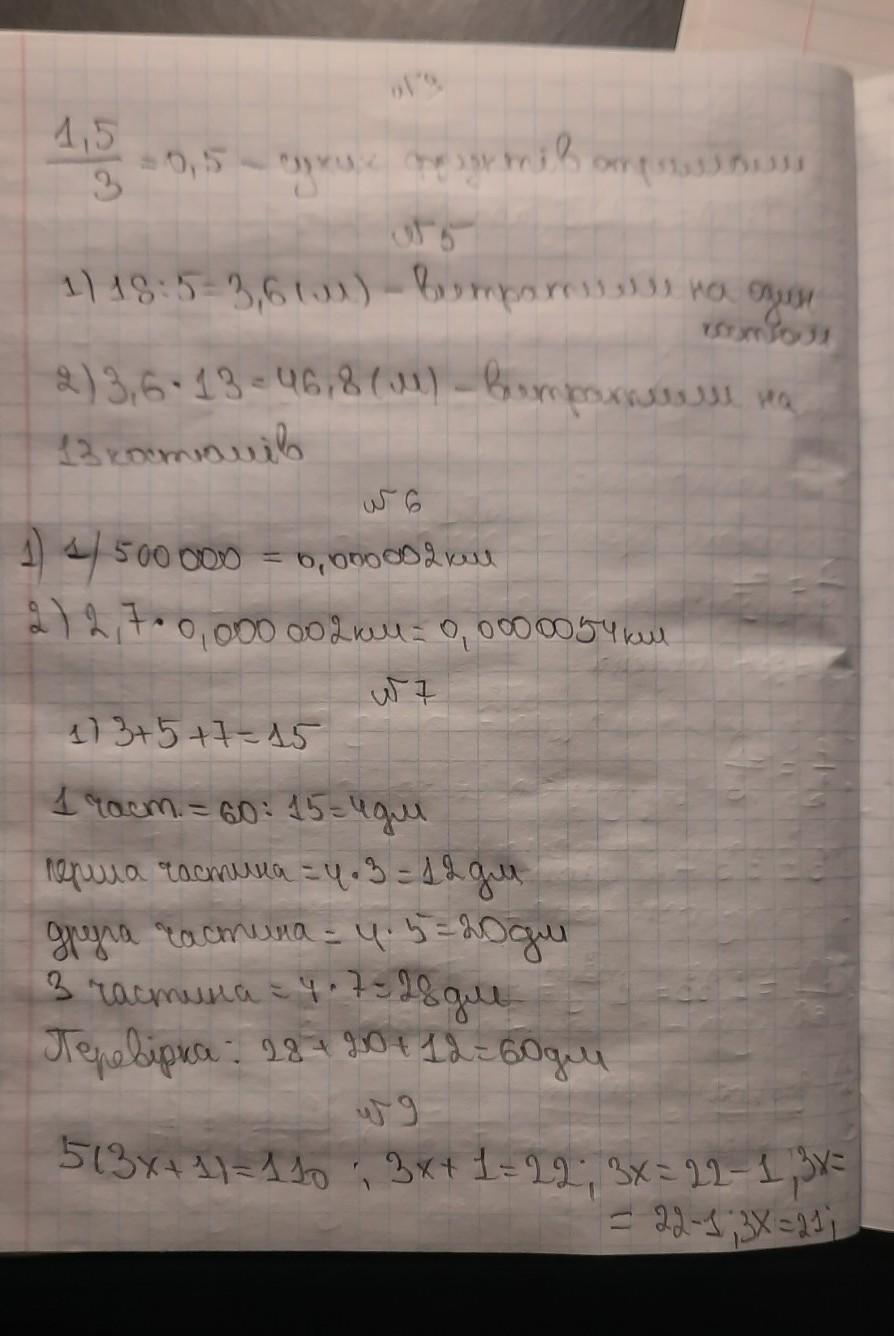 №3
1,5/3 = 0,5 –
№5
1) 18:5=3,6(м) – витратили на один костюм
2) 3,6·13=46,8(м) – витратили на
13 костюмів
№6
1) 1/500 000 = 0,000002км
2) 2,7·0,000 002км=0,0000054км
№7
1) 3+5+7=15
1 част.=60:15=4дм
перша частина=4·3=12дм
друга частина=4·5=20дм
3 частина=4·7=28дм
Перевірка: 28+20+12=60дм
№9
5(3x+1)=110 ; 3x+1=22; 3x=22-1; 3x=
= 22-1; 3x=21;